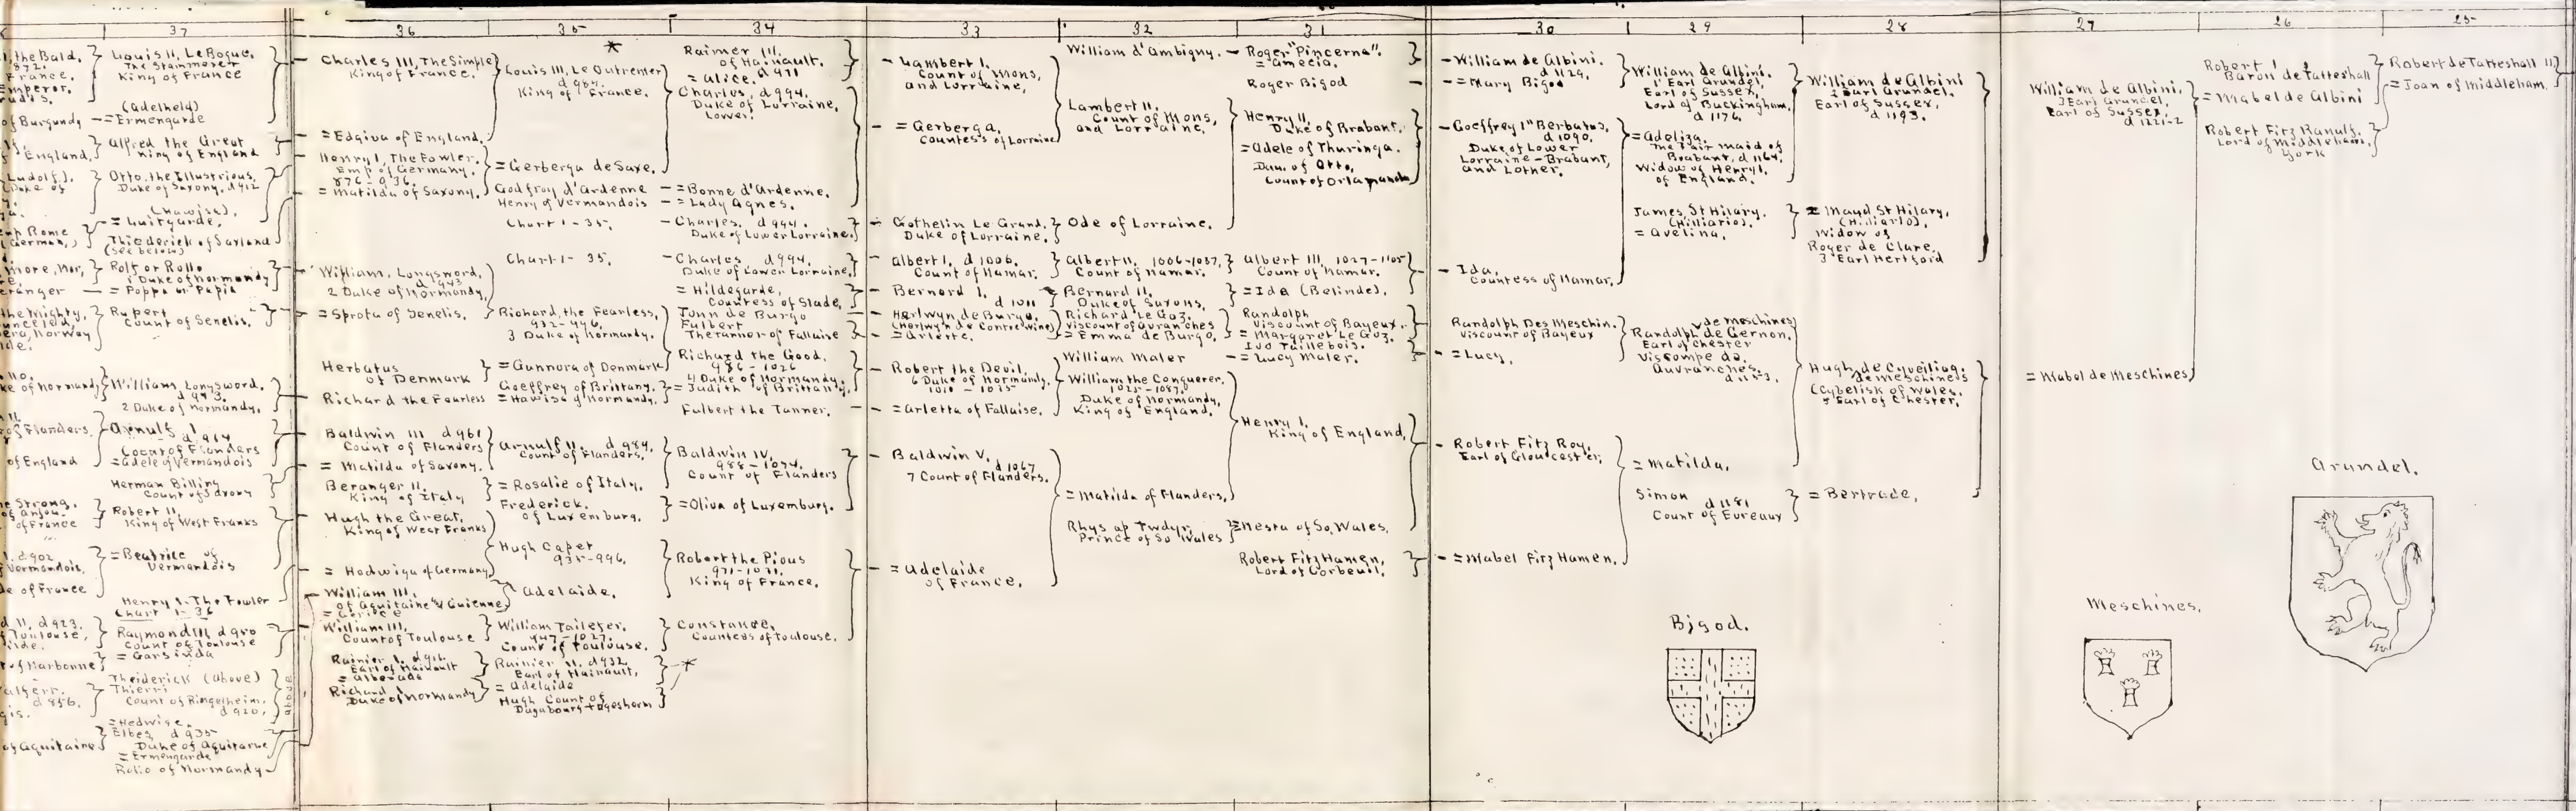 37
36
35
34
33
32
31
30
29
28
27
26
25
the Bald,
872.
France.
Emperor.
of Burgundy
England,
Ludolf).
Duke of
Rome
German,)
ranger
the Mighty,
Norway
of Normandy
of Flanders,
of England
Strong.
of Anjou
of France
d 902
Vermandois,
of France
d 923.
Toulouse,
of Narbonne
d 856.
of Aquitaine
Louis II, Le Begue.
The Stammerer
King of France
(Adelheld)
=Ermengarde
Alfred the Great
King of England
Otto, the Illustrious,
Duke of Saxony. d 912
(Hawise),
= Luitgarde.
Thiederick of Saxland
(see below)
Rolf or Rollo
1 Duke of Normandy
= Poppa or Papia
Rupert
Count of Senelis.
William, Longsword.
d 943.
2 Duke of Normandy.
Arnulf I
d 964
Count of Flanders
=Adele of Vermandois
Herman Billing
Count of Saxony
Robert II,
King of West Franks
=Beatrice of
Vermandois
Henry I. The Fowler
Chart 1-36
Raymond III d 950
Count of Toulouse
= Garsinda
Theiderick (Above)
Thierri
Count of Ringelheim.
d 920.
above
=Hedwige.
Elbes d 935
Duke of Aquitaine
= Ermengarde
Rolio of Normandy
Charles III, The Simple
King of France.
= Edgiva of England.
Henry I, The Fowler.
Emp of Germany.
876-936.
= Matilda of Saxony.
William, Longsword,
d 943
2 Duke of Normandy,
= Sprota of Senelis.
Herbatus
of Denmark
Richard the Fearless
Baldwin III d 961
Count of Flanders
= Matilda of Saxony.
Beranger II.
King of Italy
Hugh the Great,
King of West Franks
= Hedwiga of Germany
William III.
of Aquitaine & Guienne
= Gerloc
William III,
Count of Toulouse
Rainier I. d 916
Earl of Hainault
= Alberada
Richard I
Duke of Normandy
*
Louis III, Le Outremer
d 954.
King of France.
= Gerberga de Saxe.
Godfroy d'Ardenne
Henry of Vermandois
Chart 1-35.
Chart 1- 35.
Richard, the Fearless,
932-996,
3 Duke of Normandy.
= Gunnora of Denmark
Goeffrey of Brittany.
= Hawise of Normandy.
Arnulf II. d 989.
Count of Flanders.
= Rosalie of Italy.
Frederick.
of Luxemburg.
Hugh Capet
935-996.
Adelaide.
William Taillefer.
947-1027.
Count of Toulouse.
Rainier II. d 932
Earl of Hainault,
= Adelaide
Hugh Count of
Dagabourg & Egesheim
*
Raimer III.
of Hainault.
= Alice. d 971
Charles, d 994.
Duke of Lorraine,
Lower.
= Bonne d'Ardenne.
= Lady Agnes.
Charles, d 994.
Duke of Lower Lorraine.
Charles d 994
Duke of Lower Lorraine,
= Hildegarde,
Countess of Slade,
John de Burgo
Fulbert
The tanner of Fallaise
Richard the Good.
986-1026
4 Duke of Normandy.
= Judith of Brittany.
Fulbert the Tanner.
Baldwin IV.
988-1034.
Count of Flanders
=Oliva of Luxemburg.
Robert the Pious
971-1031.
King of France.
Constance.
Countess of Toulouse.
Lambert I.
Count of Mons,
and Lorraine,
= Gerberga.
Countess of Lorraine
Gothelin Le Grand.
Duke of Lorraine.
Albert I. d 1006.
Count of Namar.
Bernard I.
d 1011
Herlwyn de Burgo.
(Herlwyn de Conteville)
= Arlette.
Robert the Devil.
6 Duke of Normandy.
1010 - 1035
= Arletta of Fallaise.
Baldwin V.
d 1067
7 Count of Flanders.
= Adelaide
of France.
William d'Ambigny.
Lambert II.
Count of Mons,
and Lorraine,
Ode of Lorraine.
Albert II. 1006-1037,
Count of Namar.
Bernard II.
Duke of Saxons.
Richard Le Goz.
Viscount of Avranches
= Emma de Burgo.
William Maler
William, the Conquerer.
1025-1087.
Duke of Normandy,
King of England.
= Matilda of Flanders,
Rhys ap Twdyr,
Prince of So Wales
Roger "Pincerna".
= Amecia.
Roger Bigod
Henry II.
Duke of Brabant.
= Adele of Thuringa.
Dau. of Otto,
Count of Orlamunda
Albert III, 1027-1105
Count of Namar.
= Ida (Belinde),
Randolph
Viscount of Bayeux.
= Margaret Le Goz.
Ivo Taillebois.
= Lucy Maler.
Henry I.
King of England,
=Nesta of So. Wales.
Robert Fitz Hamen,
Lord of Corbeuil.
William de Albini.
d 1129.
= Mary Bigod
Goeffrey 1st Berbatus.
d 1090.
Duke of Lower
Lorraine - Brabant,
and Lother.
Ida,
Countess of Namar.
Randolph Des Meschin.
Viscount of Bayeux
= Lucy,
Robert Fitz Roy.
Earl of Gloucester.
= Mabel Fitz Hamen.
William de Albini.
1' Earl Arundel,
Earl of Sussex,
Lord of Buckingham,
d 1176.
= Adeliza.
The Fair maid of
Brabant, d 1164.
Widow of Henry I.
of England.
James, St Hilary.
(Hilliario).
= Avelina,
de Meschines
Randolph de Gernon.
Earl of Chester
Viscompe de.
Auvranches.
d 1153.
= Matilda.
Simon
d 1181
Count of Eureaux
Bigod.
William de Albini
2 Earl Arundel.
Earl of Sussex,
d 1193.
= Maud St Hilary,
(Hilliario),
Widow of
Roger de Clare,
3 Earl Hertford
Hugh de Cyveiliog.
de Meschines
(Cybelisk of Wales.
5 Earl of Chester,
= Bertrade,
William de Albini.
3 Earl Arundel,
Earl of Sussex,
d 1221-2
= Mabel de Meschines
Meschines.
Robert I
Baron de Tatteshall
= Mabel de Albini
Robert Fitz Ranulf.
Lord of Middleham,
York
Arundel.
Robert de Tatteshall II
= Joan of Middleham.